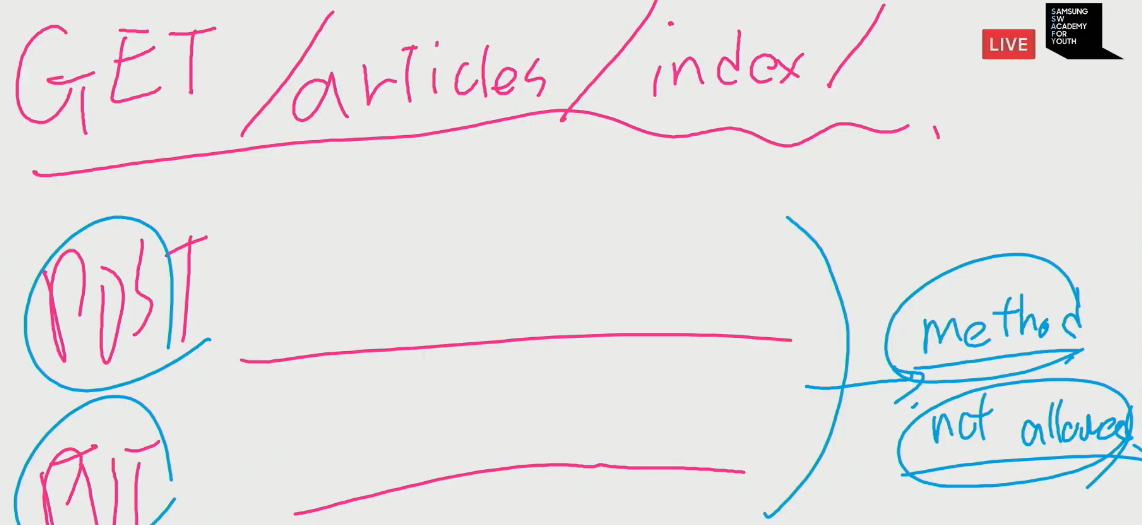 GET /articles/index/
LIVE
SAMSUNG
SW
ACADEMY
FOR
YOUTH
POST
method
not allowed